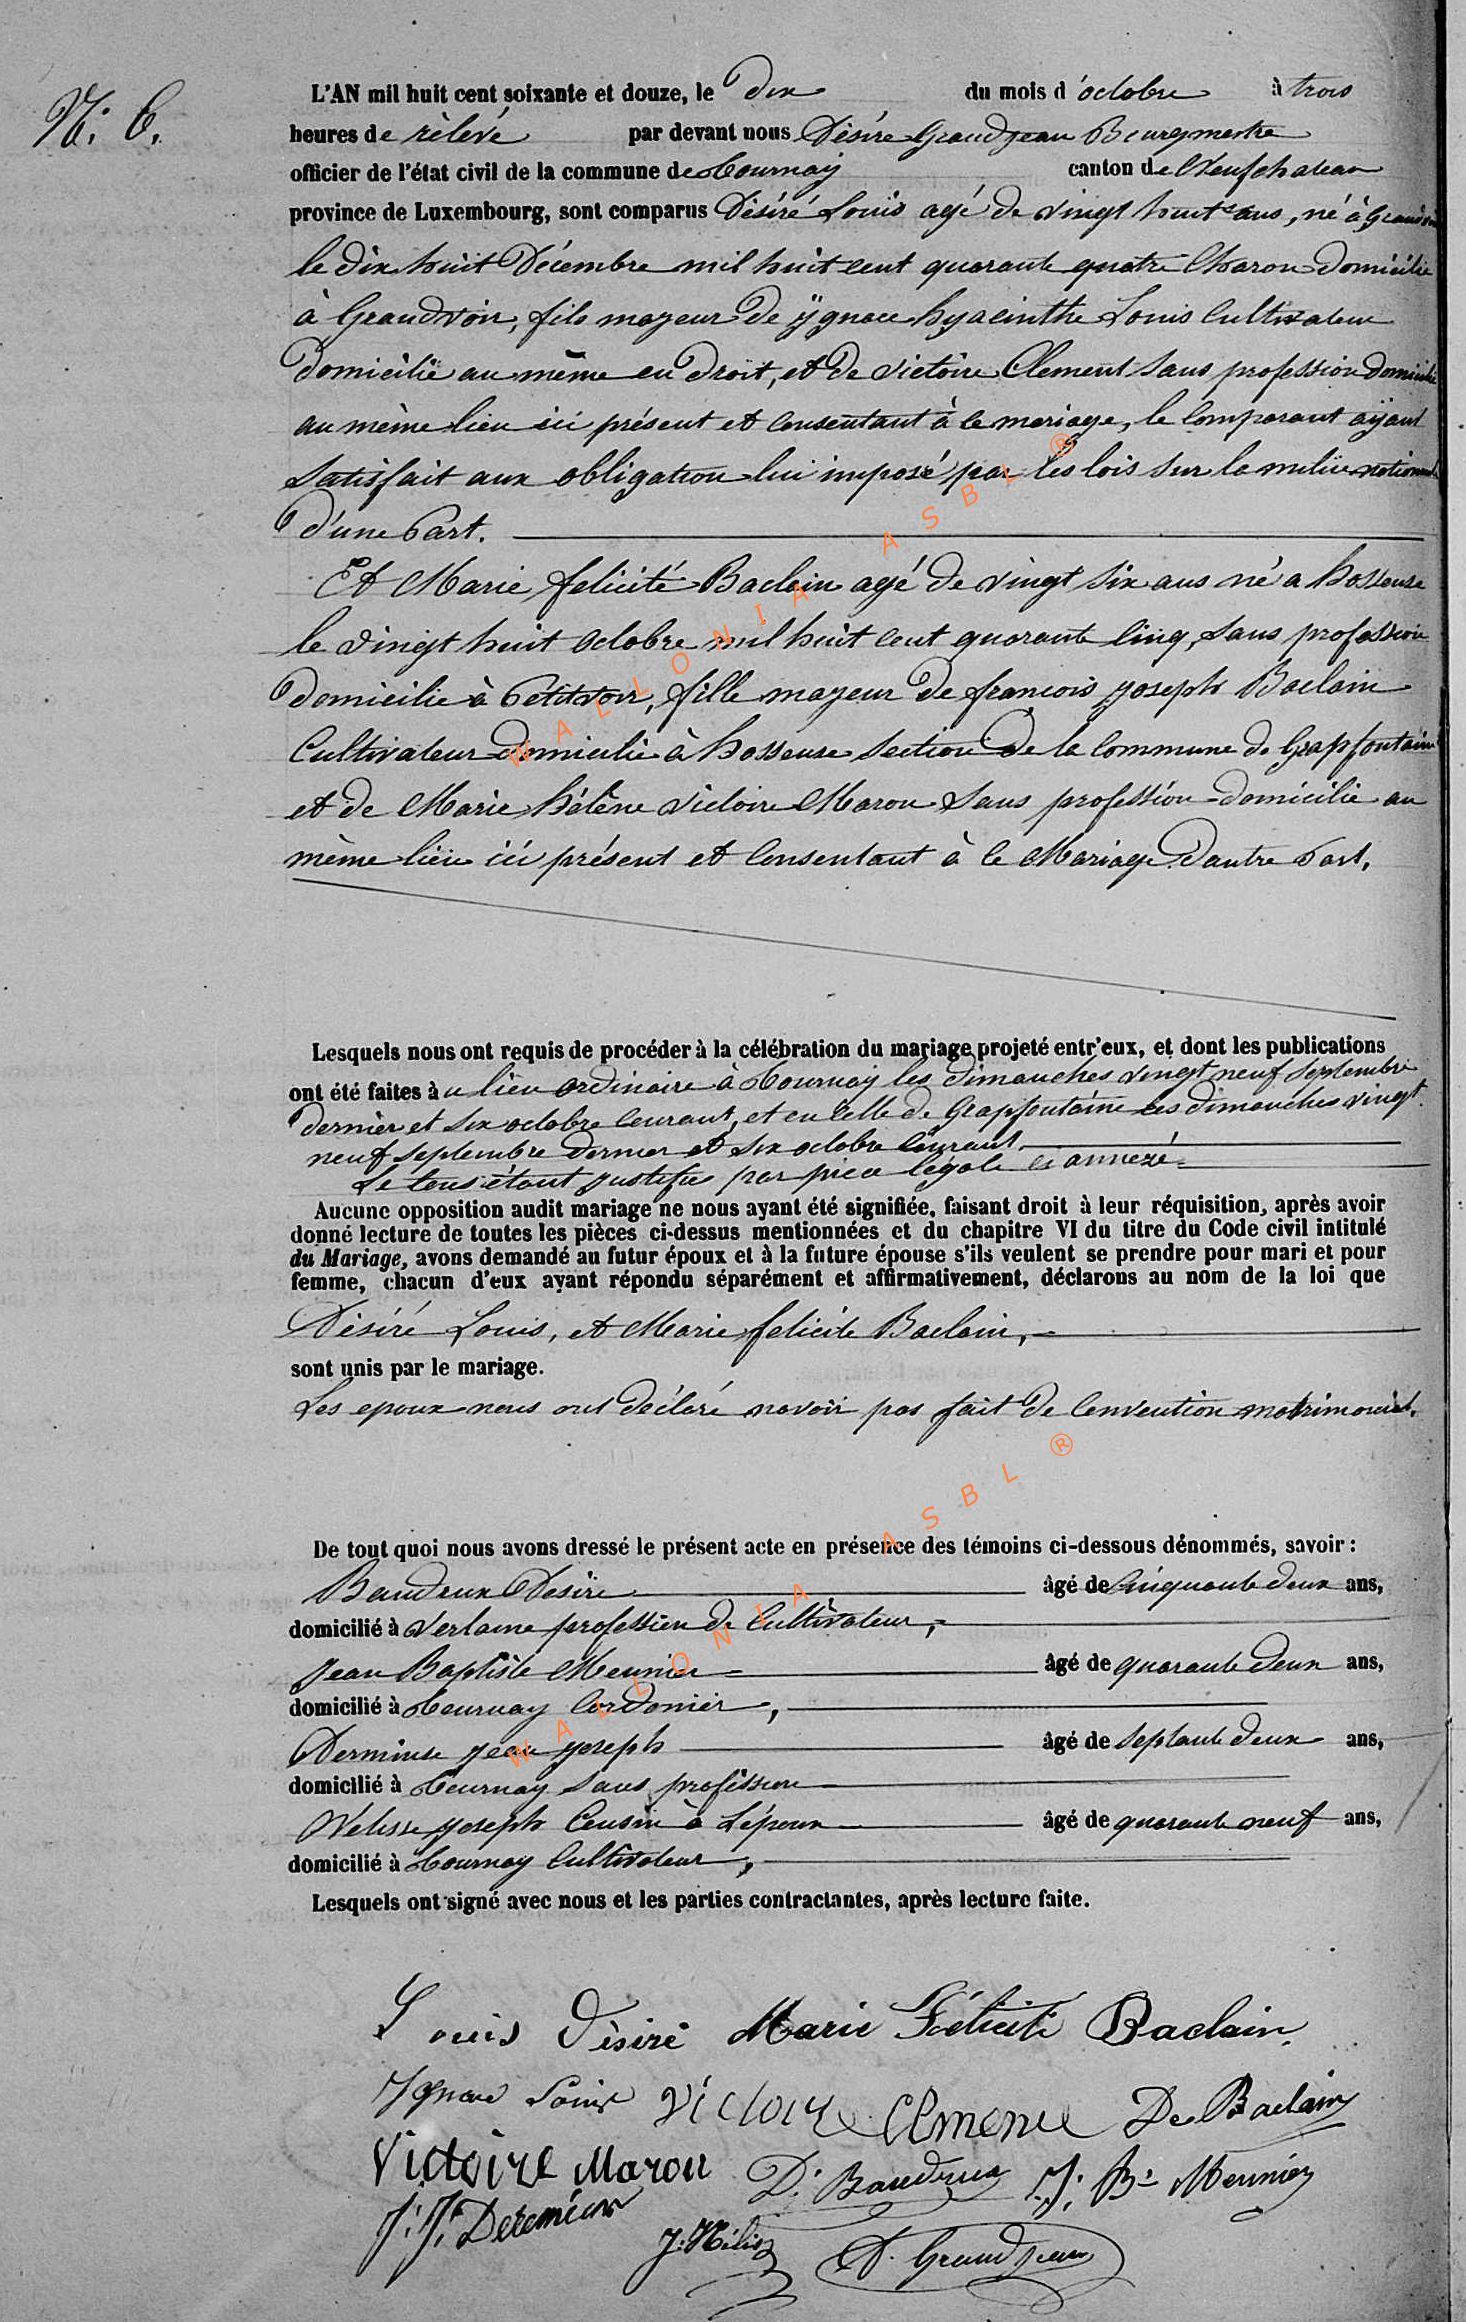 N: 6.
L'AN mil huit cent soixante et douze, le dix du mois d'octobre à trois
heures de rélevé par devant nous Désiré Grandjean Bourgmestre
officier de l'état civil de la commune de Tournay canton de Neufchateau
province de Luxembourg, sont comparus Désiré Louis agé de vingt huit ans, né à Grandvoir
le dix huit Décembre mil huit cent quarante quatre Charon domicilié
à Grandvoir, fils mayeur de ÿgnace hyacinthe Louis Cultivateur
domicilié au même en droit, et de victoire Clement sans profession domicilié
au même lieu ici présent et consentant à ce mariage, le Comparant ayant
satisfait aux obligation lui imposé par les lois sur la milice national
d'une Part.
Et Marie felicité Baclain agé de vingt six ans né a hosseuse
le vingt huit octobre mil huit cent quarante cinq, sans profession
domicilié à Petitvoir, fille mayeur de francois joseph Baclain
Cultivateur domicilié à hosseuse section de la commune de Grapfontaine
et de Marie hélène victoire Maron sans profession domicilié au
même lieu ici présent et Consentant à ce Mariage d'autre Part,
Lesquels nous ont requis de procéder à la célébration du mariage projeté entr'eux, et dont les publications
ont été faites au lieu ordinaire à Tournay les dimanches vingt neuf septembre
dernier et six octobre courant, et en celle de Grapfontaine les dimanches vingt
neuf septembre dernier et six octobre courant
Le tous étant justifié par piece légale ci annexé
Aucune opposition audit mariage ne nous ayant été signifiée, faisant droit à leur réquisition, après avoir
donné lecture de toutes les pièces ci-dessus mentionnées et du chapitre VI du titre du Code civil intitulé
du Mariage, avons demandé au futur époux et à la future épouse s'ils veulent se prendre pour mari et pour
femme, chacun d'eux ayant répondu séparément et affirmativement, déclarons au nom de la loi que
Désiré Louis, et Marie felicité Baclain,
sont unis par le mariage.
Les epoux nous ont déclaré navoir pas fait de Convention matrimonial.
De tout quoi nous avons dressé le présent acte en présence des témoins ci-dessous dénommés, savoir :
Baudrux Désiré âgé de Cinquante deux ans,
domicilié à Verlaine profession de Cultivateur,
Jean Baptiste Meunier âgé de quarante deux ans,
domicilié à Tournay Cordonier,
Derminse jean joseph âgé de septante deux ans,
domicilié à Tournay sans profession
Nélisse joseph Cousin à L'époux âgé de quarante neuf ans,
domicilié à Tournay Cultivateur,
Lesquels ont signé avec nous et les parties contractantes, après lecture faite.
Louis Désiré Marie Félicité Baclain
Ignace Louis Victoire Clmence De Baclain
Victoire Maron D. Baudrux J. B. Meunier
J. J. J: Nélis D. Grandjean
WALLONIA ASBL ®
WALLONIA ASBL ®